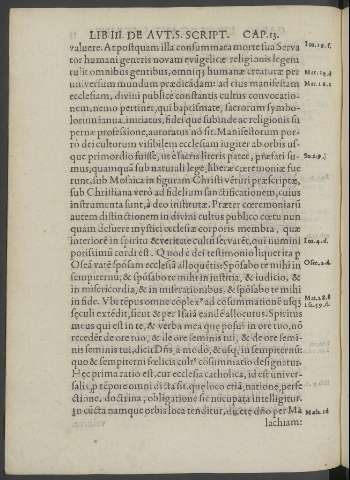 LIB III. DE AVT. S. SCRIPT. CAP. 13.
valuere. At postquam illa consummata morte sua Serva
tor humani generis novam evãgelicæ religionis legem
tulit omnibus gentibus, omniq; humanæ creaturæ per
universum mundum prædicãdam: ad cius manifestam
ecclesiam, divini publice constantis cultus convocatio-
nem, nemo pertinet, qui baptismate, sacrorum symbo-
lorum ianua, initiatus, fidei que subinde ac religionis su
pernæ professione, autoratus nõ sit. Manifestorum por-
rò dei cultorum visibilem ecclesiam iugiter ab orbis us-
que primordio fuisse, ut è sacra literis patet, præfati su-
mus, quamquã sub naturali lege, liberæ cæremoniæ fue
runt, sub Mosaica in figuram Christi vẽturi præscriptæ,
sub Christiana verò ad fidelium sanctificationem, cuius
instrumenta sunt, à deo institutæ. Præter cœremoniarũ
autem distinctionem in divini cultus publico cœtu nun
quam defuere mystici ecclesiæ corporis membra, quæ
interiorè in spiritu & veritate cultũ servarẽt, qui numini
potissimũ cordi est. Quod è dei testimonio liquet ita p
Oseã vatẽ spõsam ecclesiã alloquẽtis: Spõsabo te mihi in
sempiternũ, & spõsabo te mihi in iustitia, & iudicio, &
in misericordia, & in miserationibus, & spõsabo te mihi
in fide. Vbi tẽpus omne cõplexᵒ ad cõsummationẽ usq;
sęculi extẽdit, sicut & per Isaiã eandẽ allocutus. Spiritus
meus qui est in te, & verba mea quæ posui in ore tuo, nõ
recedẽt de ore tuo, & de ore seminis tui, & de ore semi-
nis seminis tui, dicit Dñs à modo, & usq; in sempiternũ:
quo & sempiterni fœlicis cultᵒ cõsummatio designatur.
Hęc prima ratio est, cur ecclesia catholica, id est univer-
salis, p tẽpore omni dicta sit. que loco etiã, natione, perfe
ctione, doctrina, obligatione sic nũcupata intelligitur.
In cũcta namque orbis loca tenditur, dicẽte dño per Ma
lachiam:
Ose. 2. d.